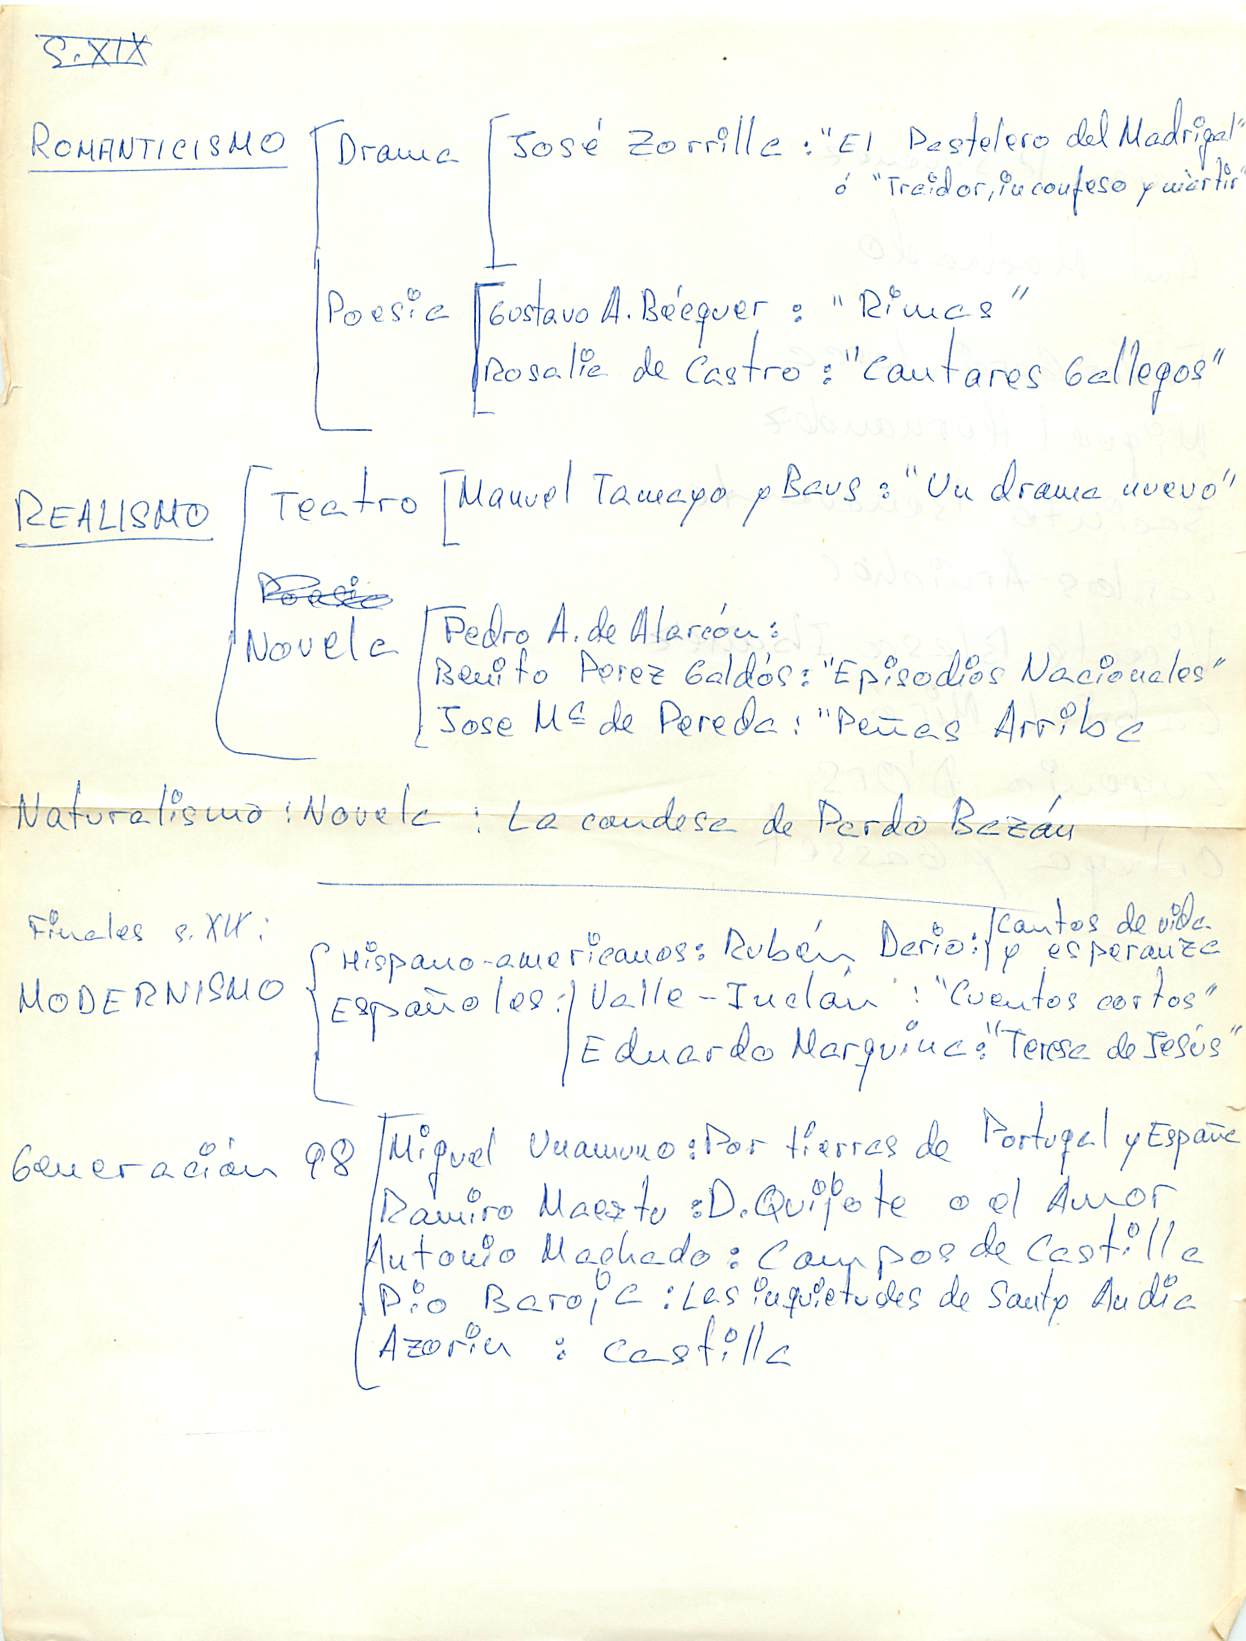 S.XIX
ROMANTICISMO Drama José Zorrilla: "El Pastelero del Madrigal"
ó "Traidor, inconfeso y mártir"
Poesia Gustavo A. Bécquer: "Rimas"
Rosalia de Castro: "Cantares Gallegos"
REALISMO Teatro Manuel Tamayo y Baus: "Un drama nuevo"
Poesia
Novela Pedro A. de Alarcón:
Benito Perez Galdós: "Episodios Nacionales"
Jose Mª de Pereda: "Peñas Arriba
Naturalismo: Novela: La condesa de Pardo Bazán
Finales s. XIX:
MODERNISMO Hispano-americanos: Rubén Dario: Cantos de vida
y esperanza
Españoles: Valle-Inclán: "Cuentos cortos"
Eduardo Marquina: "Teresa de Jesús"
Generación 98 Miguel Unamuno: Por tierras de Portugal y España
Ramiro Maeztu: D. Quijote o el Amor
Antonio Machado: Campos de Castilla
Pio Baroja: Las inquietudes de Santy Andia
Azorin: Castilla